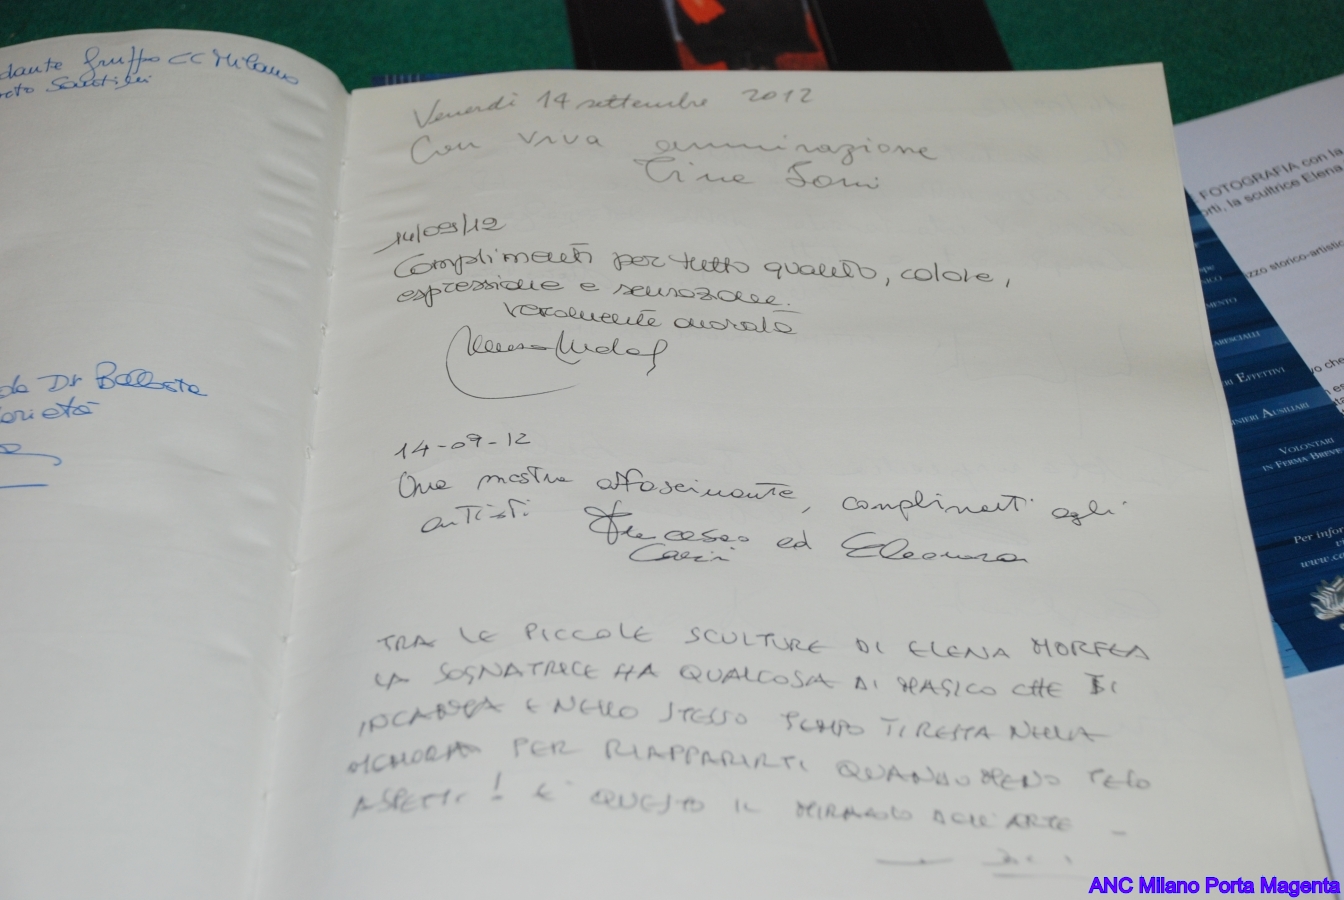 dante gruppo CC Milano
Venerdì 14 settembre 2012
Con viva ammirazione
14/09/12
Complimenti per tutto quanto, colore,
espressione e sensazione.
Veramente
14-09-12
Una mostra affascinante, complimenti agli
artisti Francesco ed Eleonora
TRA LE PICCOLE SCULTURE DI ELENA MORFEA
LA SOGNATRICE HA QUALCOSA DI MAGICO CHE TI
INCANTA E NELLO STESSO TEMPO TI RESTA NELLA
MEMORIA PER RIAPPARIRTI QUANDO MENO TE LO
ASPETTI! E' QUESTO IL MIRACOLO DELL'ARTE -
de Dr
FOTOGRAFIA con la
orti, la scultrice Elena
zzo storico-artistic
MENTO
ARESCIALLI
RI EFFETTIVI
INIERI AUSILIARI
VOLONTARI
IN FERMA BREVE
Per infor
www.ca
ANC Milano Porta Magenta